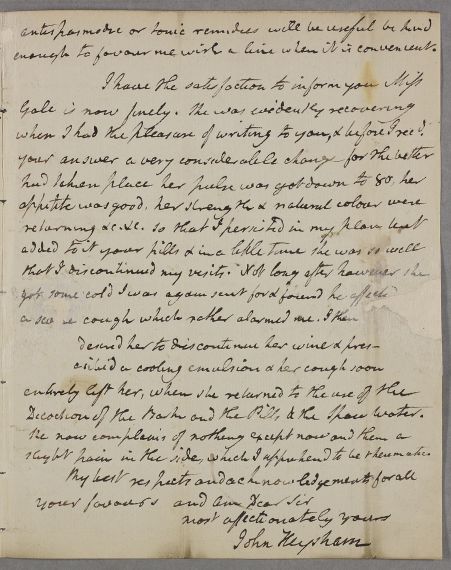 antispasmodic or tonic remedies will be useful be kind
enough to favour me with a line when it is convenient.
I have the satisfaction to inform you Miss
Gale is now finely. She was evidently recovering
when I had the pleasure of writing to you, & before I recd.
your answer a very considerable change for the better
had taken place her pulse was got down to 80, her
appetite was good. her strength & natural colour were
returning &c. &c. so that I persisted in my plan but
added to it your pills & in a little time she was so well
that I discontinued my visits. Not long after however she
got some cold I was again sent for & found he
a cough which rather alarmed me. I then
desired her to discontinue her wine & pres-
cribed a cooling emulsion & her cough soon
entirely left her, when she returned to the use of the
Decoction of the Bark and the Pills & the Spaw water.
She now complains of nothing except now and then a
slight pain in the side, which I apprehend to be rheumatic
My best respects and acknowledgements for all
your favours and am Dear Sir
most affectionately yours
John Heysham